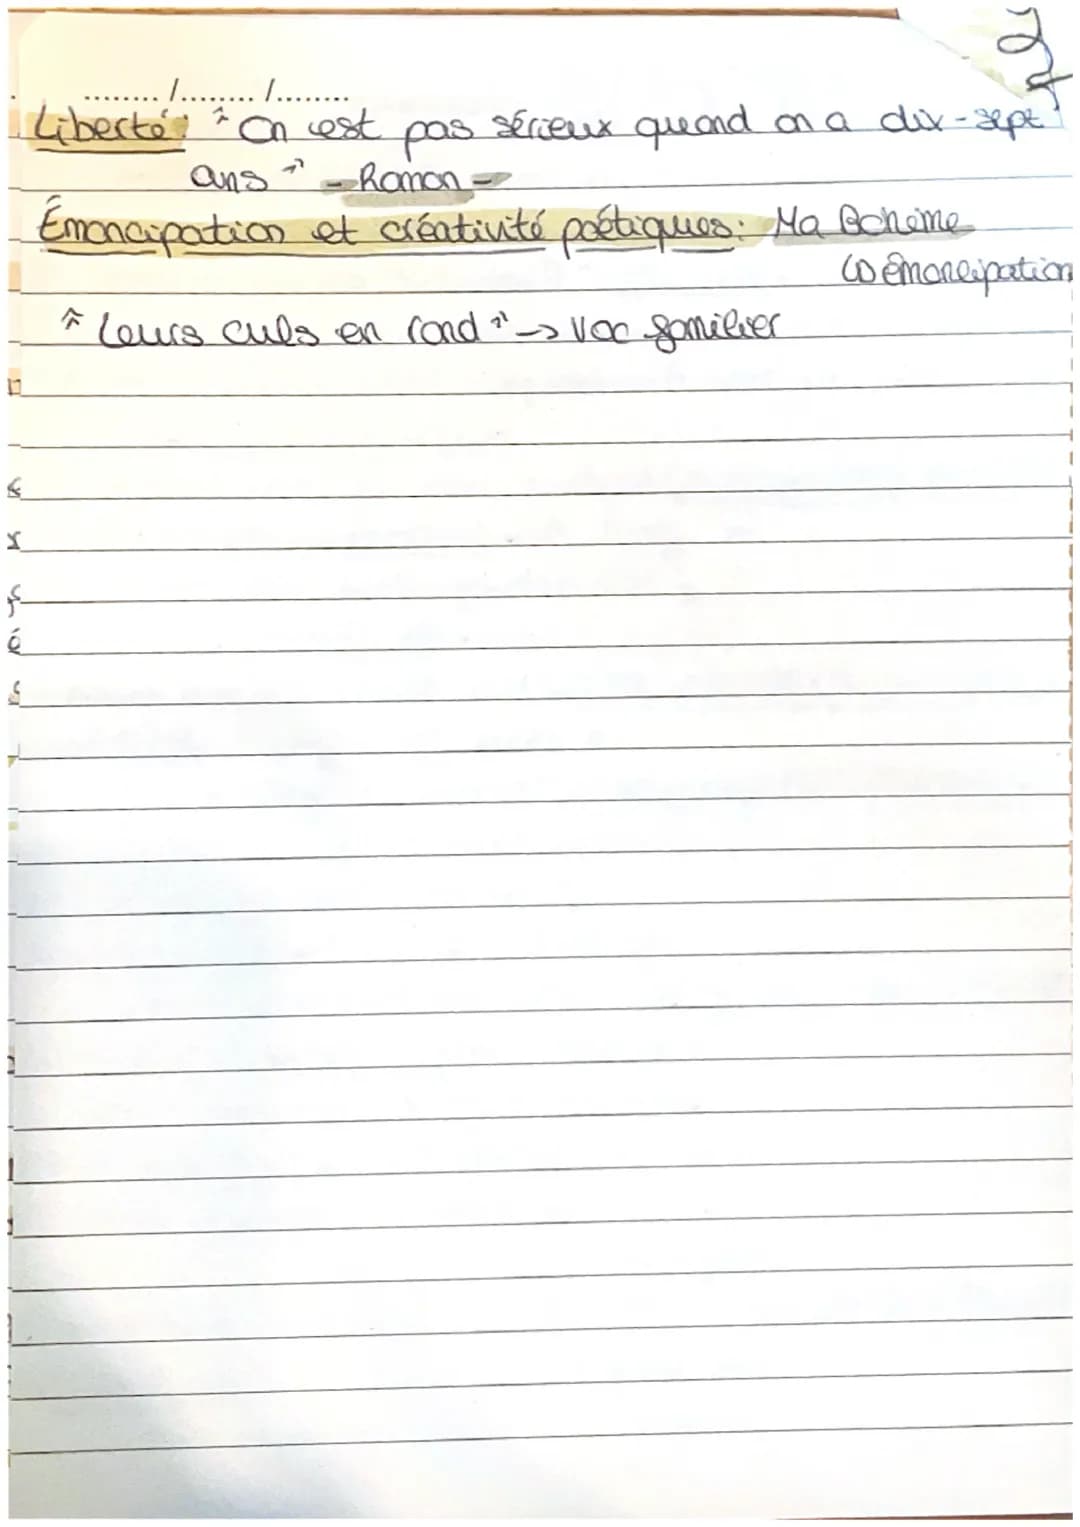 ......../......../........
Liberté: "On est pas sérieux quand on a dix-sept
ans" - Roman -
Émancipation et créativité poétiques: Ma Bohème
↳ émancipation
"Leurs culs en rond" -> voc familier